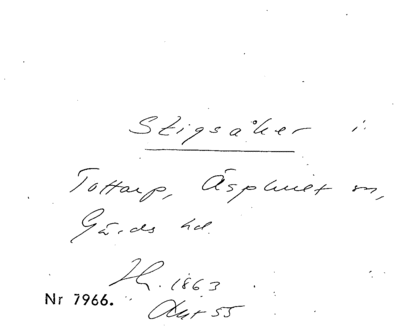 Stigsåker i
Tottarp, Äsphult sn,
Gärds hd
1863
Nr 7966.
55